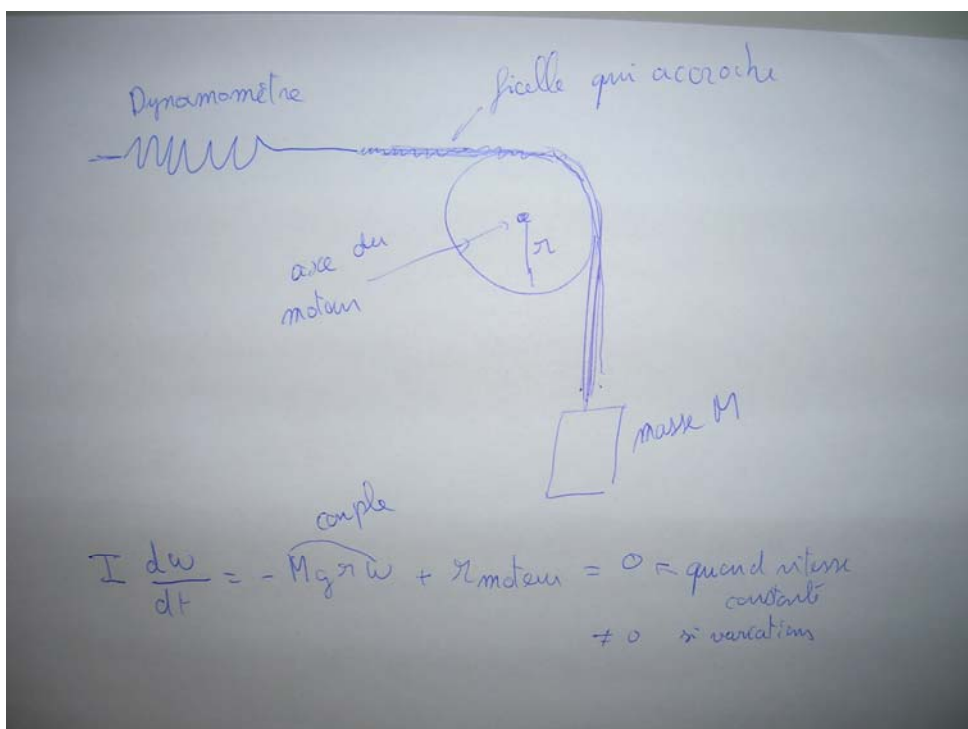 Dynamomètre
ficelle qui accroche
axe du
moteur
r
masse M
couple
I dω/dt = - Mgrω + r moteur = 0 = quand vitesse
constante
≠ 0 si variations